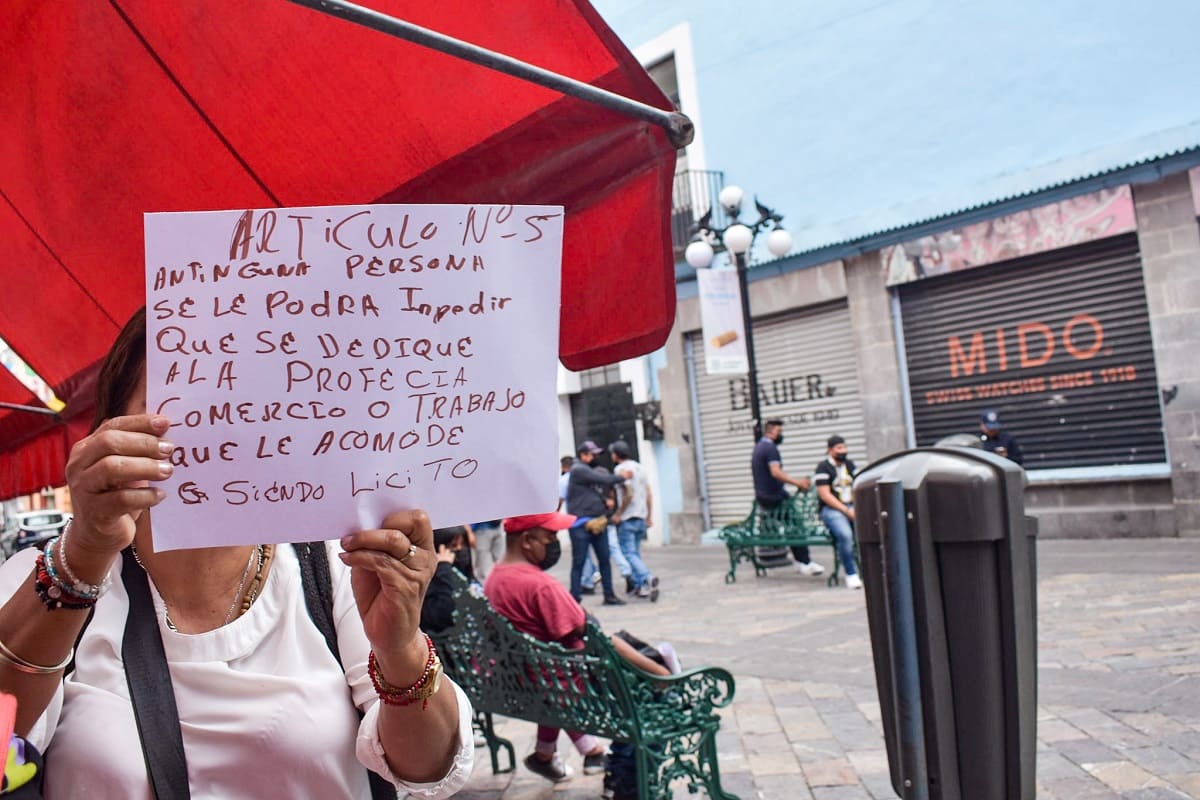 ARTICULO Nº-5
ANTINGUNA PERSONA
SE LE PODRA Inpedir
QUE SE DEDIQUE
ALA PROFECIA
COMERCIO O TRABAJO
QUE LE ACOMODE
SIENDO LICITO
BAUER
MIDO
SWISS WATCHES SINCE 1918